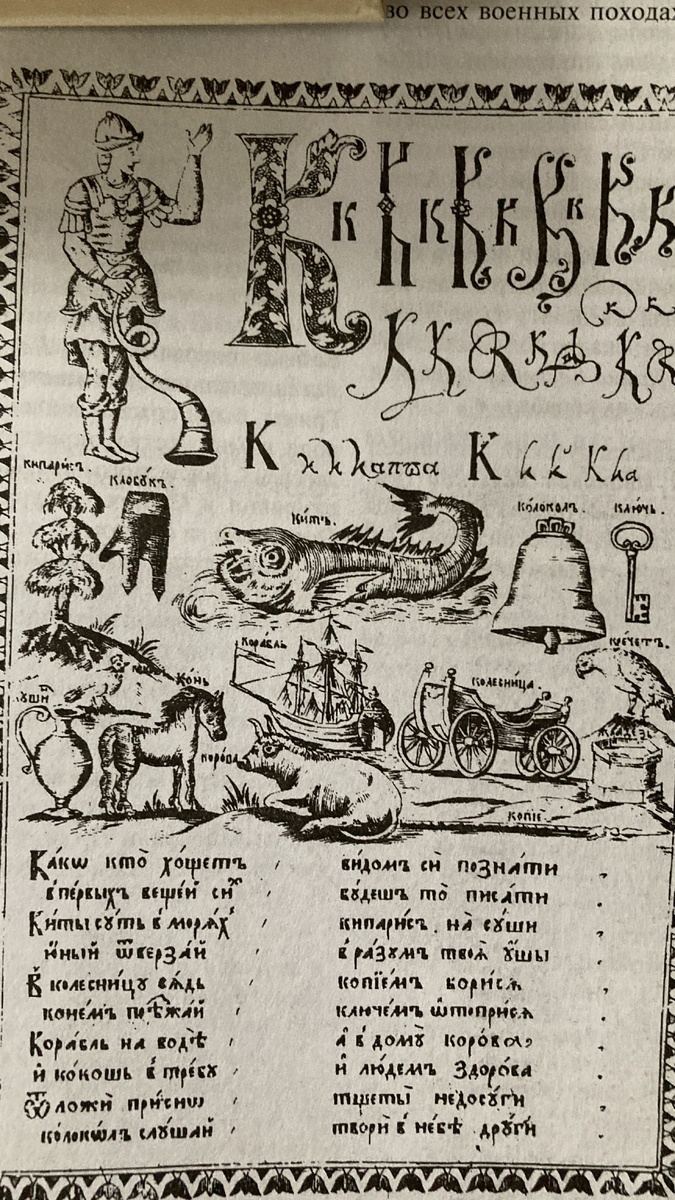 во всех военных походах
К к К к К к К к К
К К К К К К
К к к к апша К к к К ка
кипарисъ.
клобукъ.
китъ.
колоколъ.
ключь.
корабль
кречетъ.
конь
колесница.
корова
копїе
Ка́кѡ кто̀ хо́щетъ видомъ сѝ позна́ти
в̾первыхъ веще́й си́х бу́дешъ то̀ писа́ти
Ки́ты су́ть в̾ моря́х кипари́съ на су́ши
ю́ный ѿверза́й в̾ ра́зумъ твоѧ̀ ꙋ́шы
В̾ колесни́цу вѧдь копїе́мъ бори́сѧ
коне́мъ поѣжа́й ключе́мъ ѿтопри́сѧ
Кора́бль на водѣ̀ а̀ в̾ домꙋ̀ коро́ва
и̓ ко́кошь в̾ тре́бꙋ и̓ лю́демъ здоро́ва
Ѿложѝ при́снѡ тщеты̀ недосу́ги
ко́локѡлъ слу́шай творѝ в̾ не́бѣ дру́ги